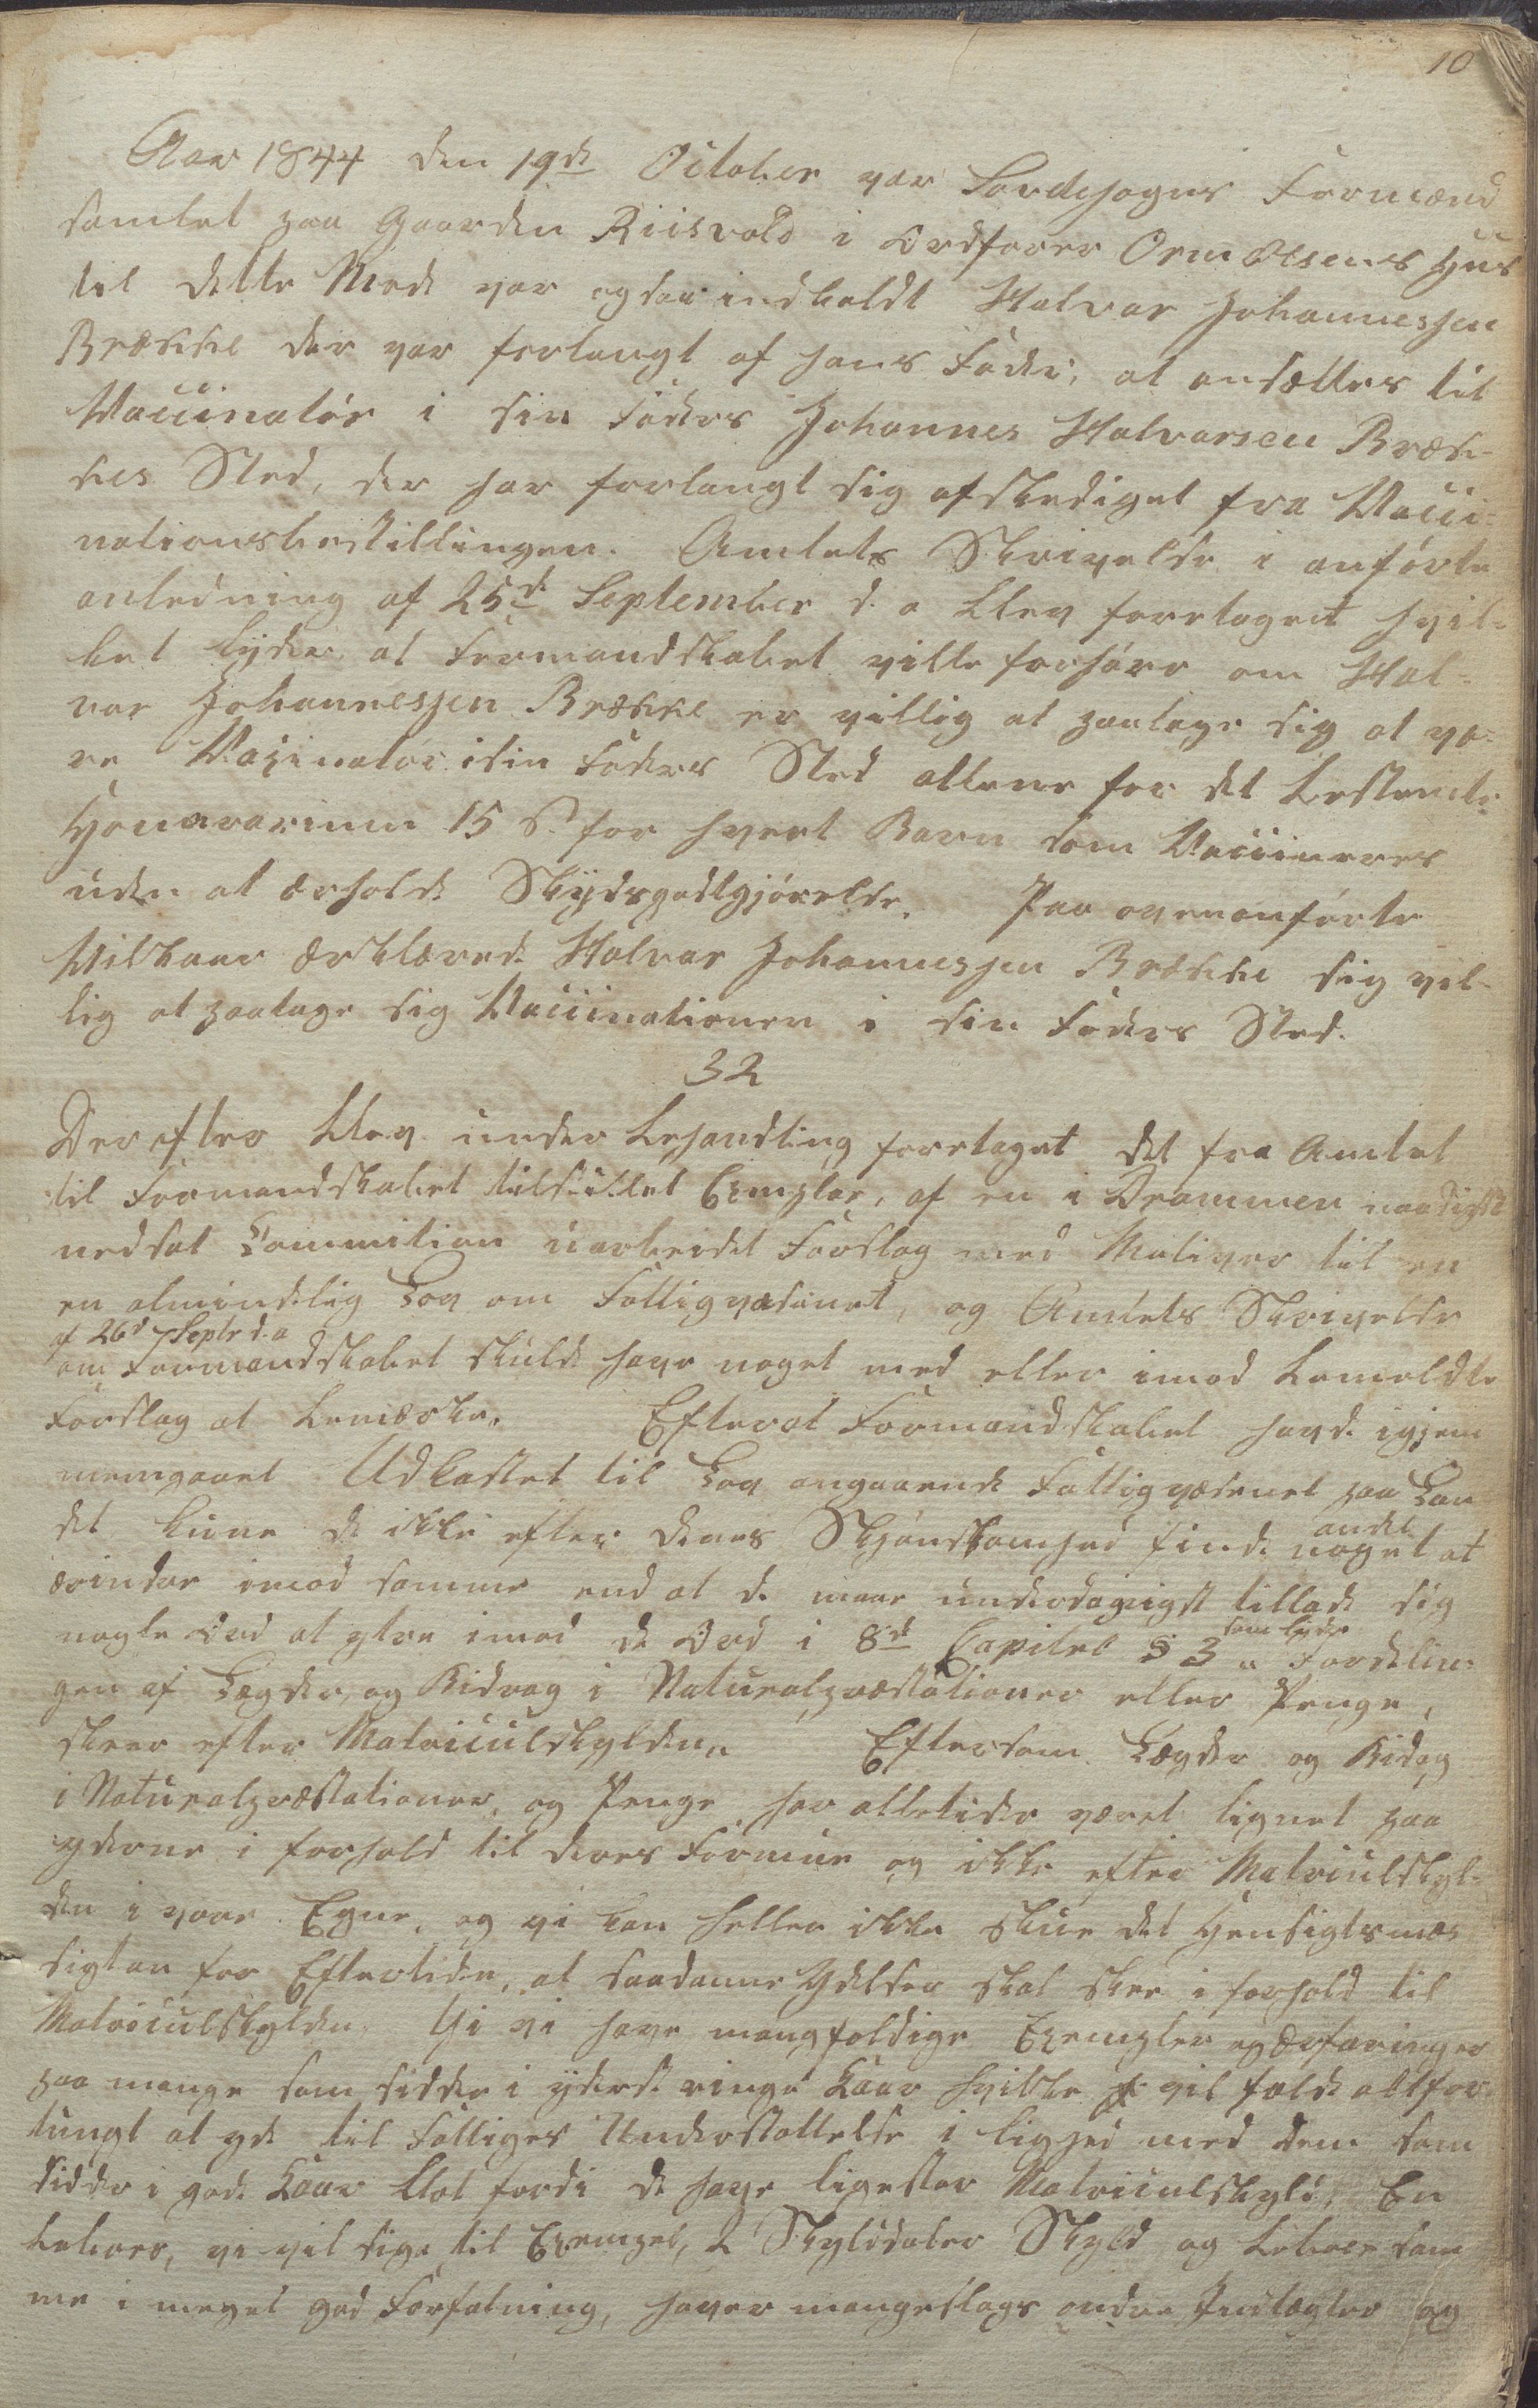 10
Aar 1844 den 19de October var Lardehogns Formænd
samlet paa Gaarden Riisvold i Ordfører Orm Olsens Huus
til dette Møde var ogsaa indkaldt Halvar Johannesjen
Brække der var forlangt af hans Fader, at ansættes til
Vaccinatør i sin Faders Johannes Halvarsen Bræk-
kes Sted, der har forlangt sig afskediget fra Vacci-
nationsbestillingen. Amtets Skrivelse i anførte
anledning af 25de September d. a blev foretaget hvil-
ket lyder, at Formandskabet ville forhøre om Hal-
var Johannesjen Brække er villig at paatage sig at væ-
re Vaxinatør i sin Faders Sted allene for det bestemte
Honararium 15 s. for hvert Barn som Vaccineres
uden at ærholde Skydsgodtgjørelse. Paa ovenanførte
Vilkaar ærklærede Halvar Johannesjen Brække sig vil-
lig at paatage sig Vaccinationen i sin Faders Sted.
32
Derefter blev under behandling foretaget det fra Amtet
til Formandskabet tilstillet Exemplar, af en i Drammen naadigst
nedsat Commition uarbeidet Forslag med Mativer til en
en almindelig Lov om Fattigvæsenet, og Amtets Skrivelse
af 26d Septr d. a
om Formandskabet skulde have noget med eller imod bemeldte
Forslag at bemærke. Efterat Formandskabet havde igjem
nemgaaet Udkastet til Lov angaaende Fattigvæsenet paa Lan
det kune de ikke efter deres Skjønsomhed finde noget andet at
ærindre imod samme end at de maae underdanigst tillade sig
nogle Ord at ytre imod de Ord i 8de Capitel § 3 som lyder „ Fordelin-
gen af Lægder, og Bidrag i Naturalpræstationer eller Penge,
skeer efter Matriculskylden„ Eftersom Lægder og Bidag
i Naturalpræstationer, og Penge har alletider været lignet paa
yderne i forhold til deres Formue og ikke efter Matriculskyl-
den i vore Egne, og vi kan heller ikke skue det Hensigtsmæs
sigt an for Eftertiden, at saadanne Ydelser skal skee i forhold til
Matriculskylden. Thi vi have mangfoldige Exempler og ærfaringer
paa mange som sidder i yderst ringe Kaar hvilke vil falde altfor
tungt at yde til Fattiges Understøttelse i lighed med dem som
sidder i gode Kaar blot fordi de have ligestor Matriculskyld; En
beboer, vi vil sige til Exempel, 2 Skylddaler Skyld og beboer sam
me i meget god Forfatning, haver mangeslags andre Indtægter og